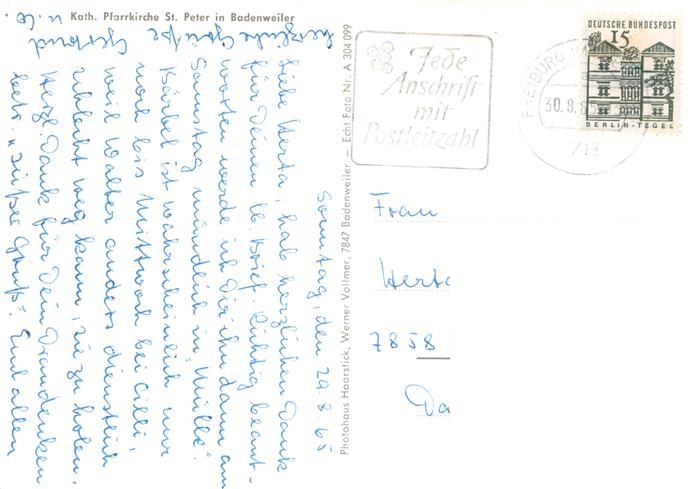 Kath. Pfarrkirche St. Peter in Badenweiler
Sonntag, den 29. 8. 65
Liebe Herta, hab herzlichen Dank
für Deinen lb. Brief. Richtig beant-
worten werde ich Dir ihn dann am
Samstag mündlich in "Mülle".
Bärbel ist wahrscheinlich nur
noch bis Mittwoch bei Cilli,
weil Walter anders dienstlich
schlecht weg kann, sie zu holen.
Herzl. Dank für Dein Drandenken
betr. "süßer Gruß". Euch allen
herzliche Grüße
Gertrud
u. Co.
Photohaus Haarstick, Werner Vollmer, 7847 Badenweiler – Echt Foto Nr. A 304 099
Jede
Anschrift
mit
Postleitzahl
FREIBURG
30.8.65
78
DEUTSCHE BUNDESPOST
15
BERLIN-TEGEL
Frau
Herta
7858
Da